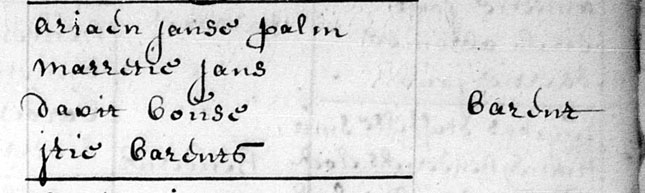 ariaen janse palm
marretie jans
davit bouse barent
jtie barents